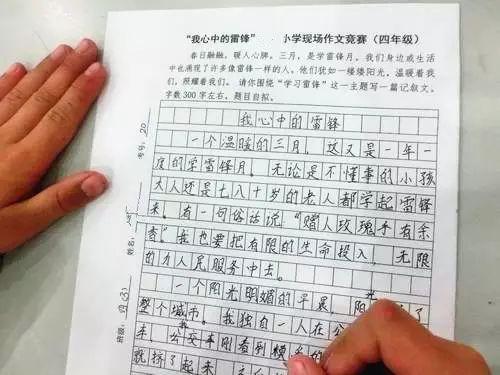 “我心中的雷锋” 小学现场作文竞赛（四年级）
春日融融，暖人心脾。三月，是学雷锋月。我们身边或生活
中也涌现了许多像雷锋一样的人。他们犹如一缕缕阳光，温暖着我
们，照耀着我们。请你围绕“学习雷锋”这一主题写一篇记叙文。
字数300字左右。题目自拟。
我心中的雷锋
一个温暖的三月，这又是一年一
度的学雷锋月。无论是不懂事的小孩
大人还是七八十岁的老人都学起雷锋
来。有一句俗话说：“赠人玫瑰手有余
香”我也要把有限的生命投入，无限
的为人民服务中去。
一个阳光明媚的早晨，阳光 了
整个城市。我独自一人在公
来，公交车刚看到
就挤了起来
考号：20
姓名：
班级：四(3)